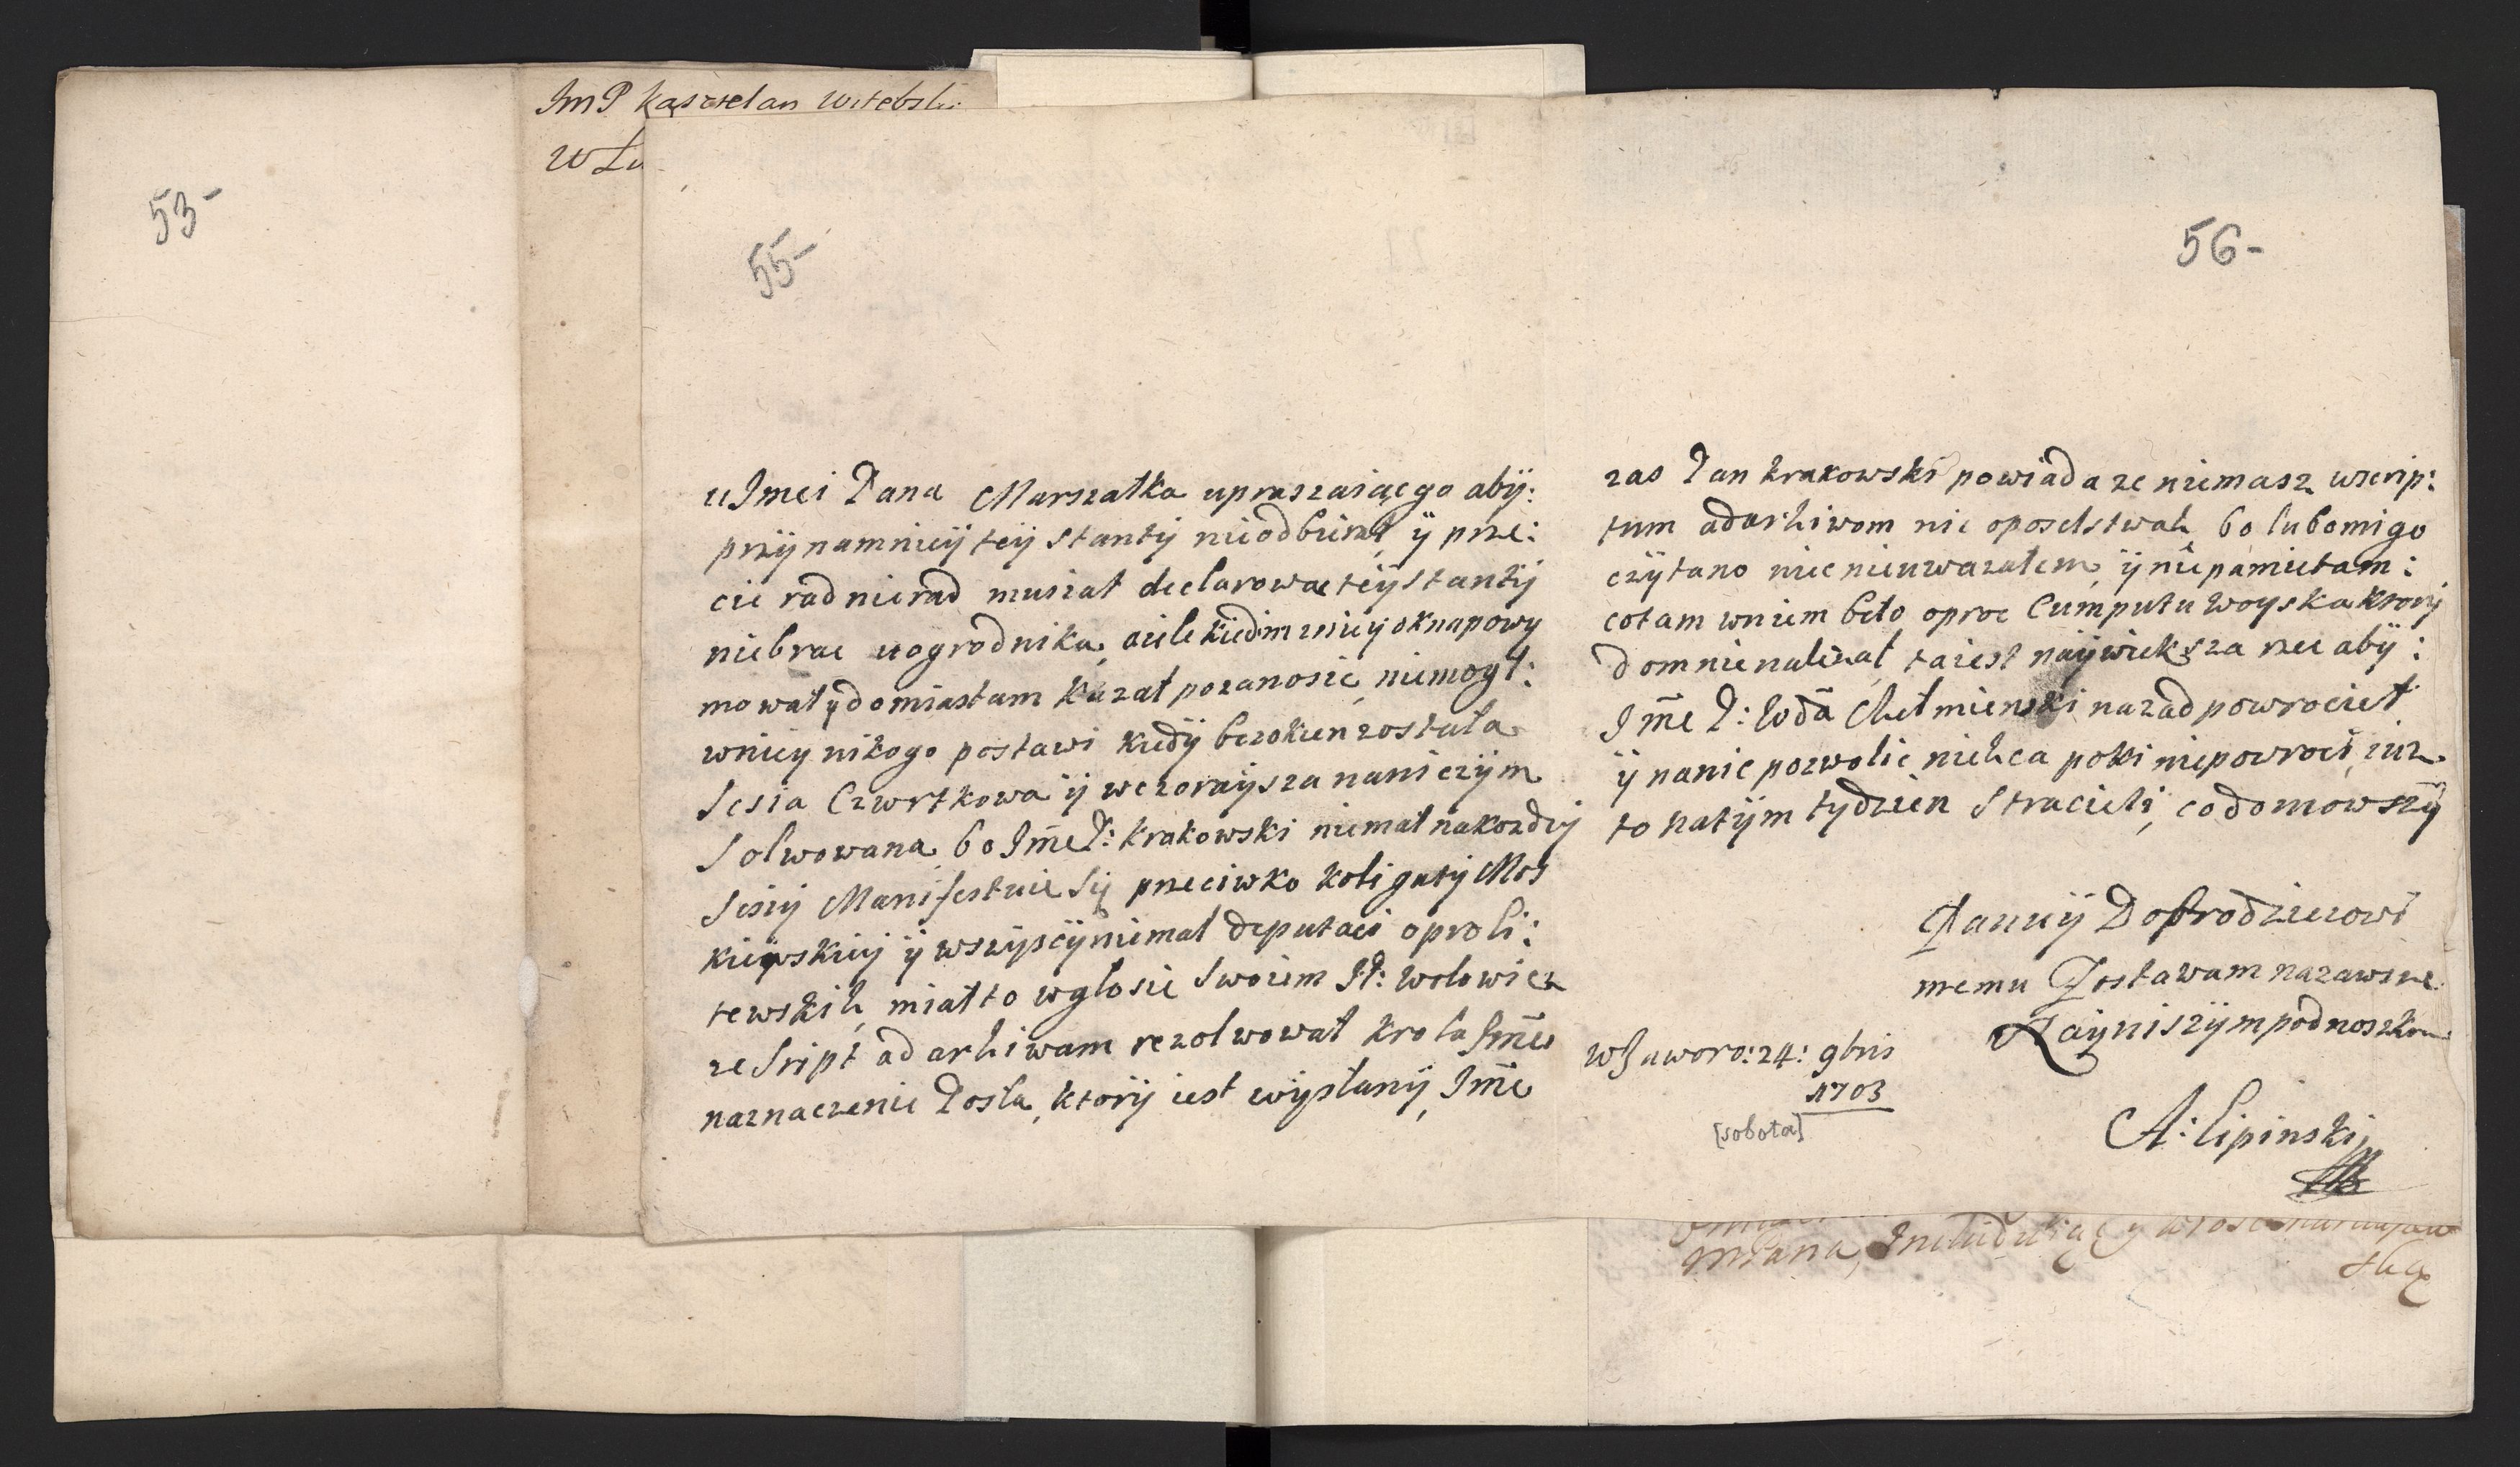 ImP Kasztelan Witebski
W Lu
53-
55-
u Jmci Pana Marszałka upraszaiącego abÿ:
przÿnamnieÿ teÿ stantÿ nieodbierał ÿ prze:
cie rad nierad musiał declarowac teÿ stantÿ
niebrac uogrodnika, aile kiedim wnieÿ okna powÿ
mował ÿ domiastam kazał pozanosic niemogł:
wnieÿ nikogo postawi kiedÿ bezokien została
Sesia Czwrtkowa ÿ wczoraÿsza naniczÿm
Solwowana bo Jmē P: krakowski niemal nakozdeÿ
Sesiÿ Manifestuie Sÿ przeciwko koligatÿ Mos
kieÿwskieÿ ÿ wszÿscÿ niemal deputaci opro li:
tewskih, miał to wglosie Swoiem JP: wolowicz
ze Sript ad arhiwam rezolwował krola Jmēi
naznaczenie Posła, ktorÿ iest wÿsłanÿ, Jmē
56-
zas Pan krakowski powiada ze niemasz wscrip:
tum adarhiwom nic oposelstwah bo lubo migo
czÿtano nic nieuwazałem, ÿ nie pamietam:
cotam wniem beło oproc Cumputu woyska ktorÿ
domnie nalezał, ta iest naÿwieksza rzec abÿ:
Jmē P: Woda Chełmienski nazad powrocieł
ÿ nanic pozwolic niehca poki niepowroci, iuz
to natÿm tydzien Stracieli, co domowszÿ
Panuÿ Dobrodzieiowi
memu Zostawam nazawsze
Naÿniszÿm podnoszkiem
w Jaworo: 24: 9bris
1703
[sobota]
A: Lipinski